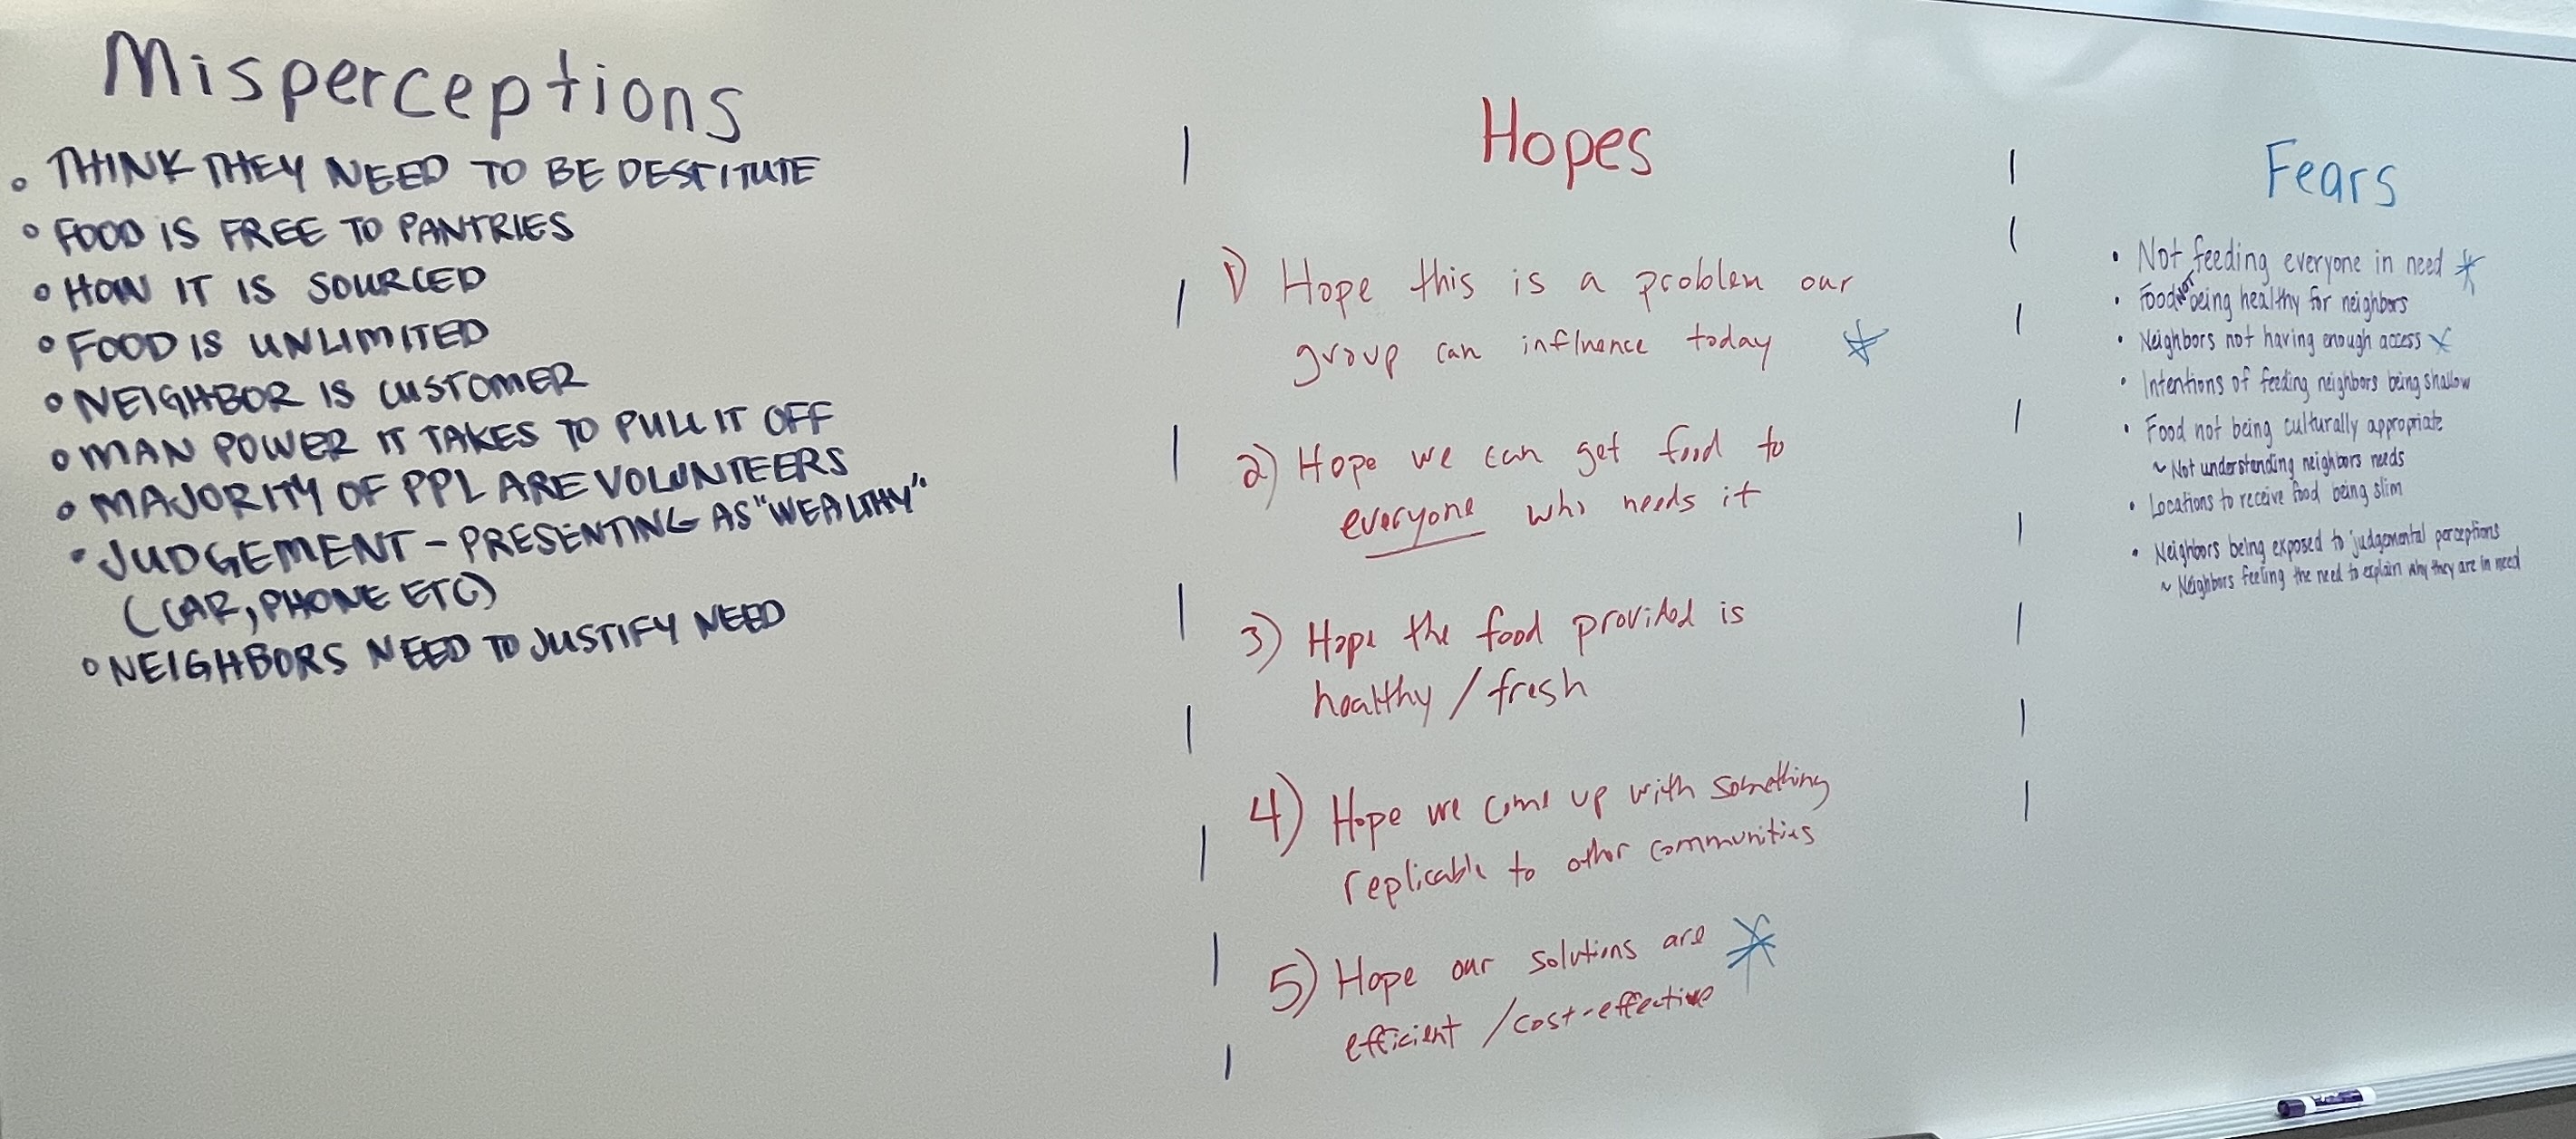 Misperceptions
• THINK THEY NEED TO BE DESTITUTE
• FOOD IS FREE TO PANTRIES
• HOW IT IS SOURCED
• FOOD IS UNLIMITED
• NEIGHBOR IS CUSTOMER
• MAN POWER IT TAKES TO PULL IT OFF
• MAJORITY OF PPL ARE VOLUNTEERS
• JUDGEMENT - PRESENTING AS "WEALTHY"
(CAR, PHONE ETC)
• NEIGHBORS NEED TO JUSTIFY NEED
Hopes
1) Hope this is a problem our
group can influence today *
2) Hope we can get food to
everyone who needs it
3) Hope the food provided is
healthy / fresh
4) Hope we come up with something
replicable to other communities
5) Hope our solutions are *
efficient / cost-effective
Fears
• Not feeding everyone in need *
• Food NOT being healthy for neighbors
• Neighbors not having enough access *
• Intentions of feeding neighbors being shallow
• Food not being culturally appropriate
~ Not understanding neighbors needs
• Locations to receive food being slim
• Neighbors being exposed to judgemental perceptions
~ Neighbors feeling the need to explain why they are in need